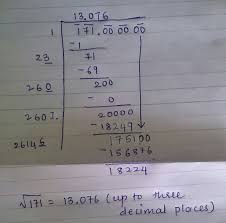 13.076
1 | 171.00 00 00
-1
23 | 71
-69
260 | 200
- 0
2607 | 20000
-18249
26146 | 175100
-156876
18224
√171 = 13.076 (up to three
decimal places)